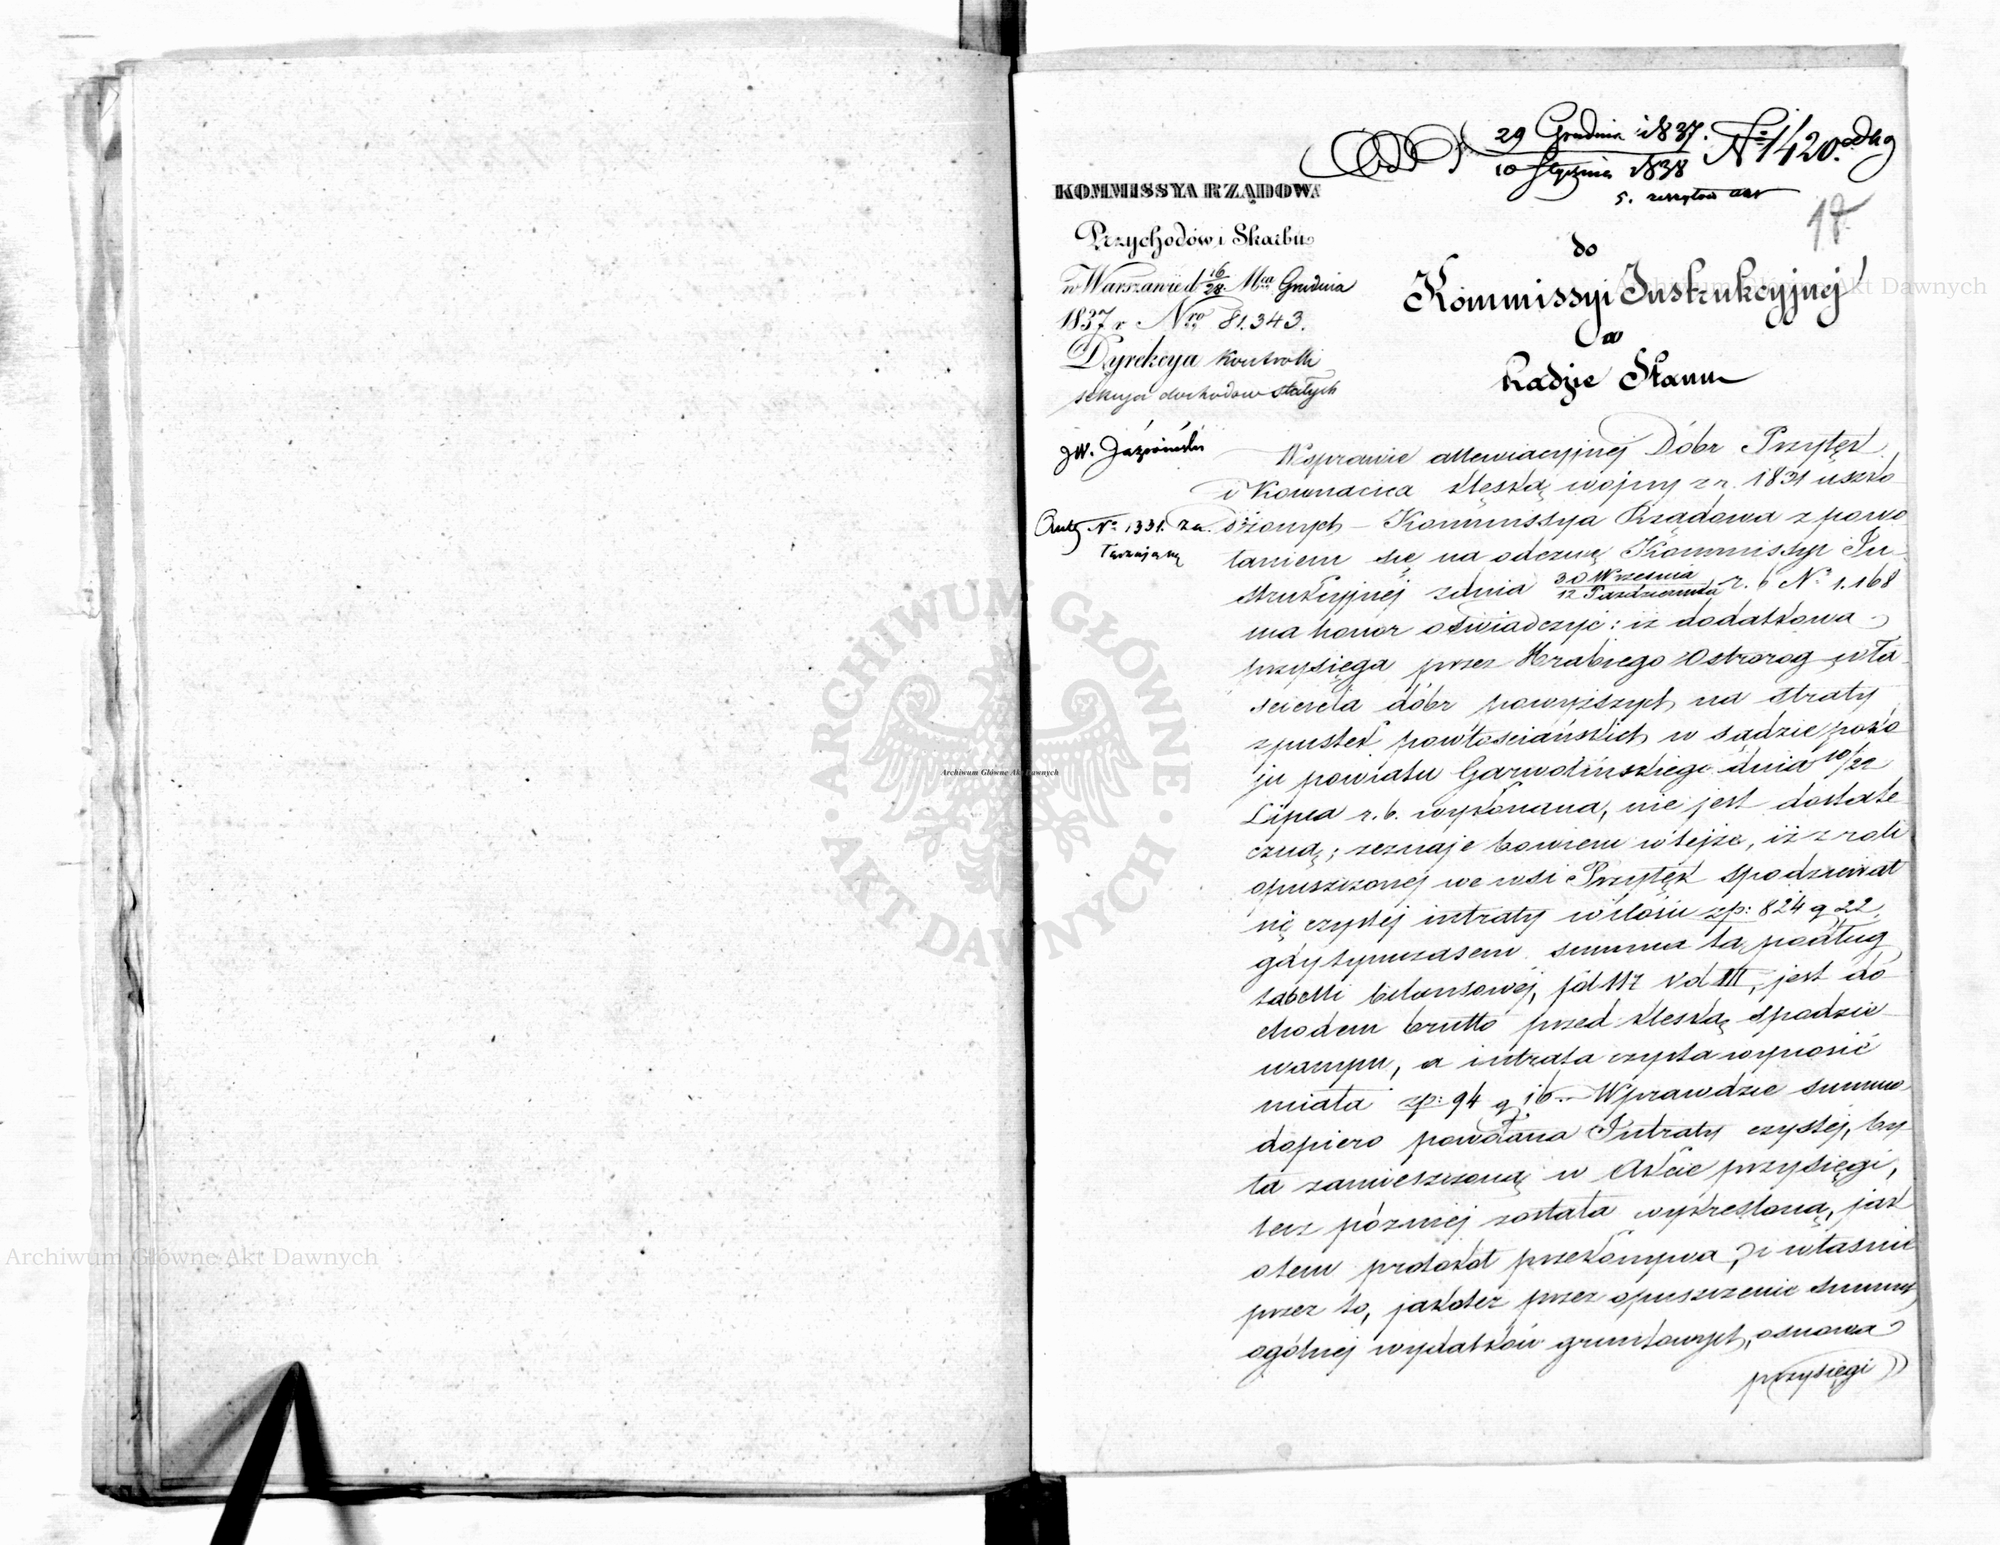 29 Grudnia 1837. No 1420.
10 Stycznia 1838
5.
17.
KOMMISSYA RZĄDOWA
Przychodów i Skarbu
w Warszawie d 16/28 Mca Grudnia
1837 r Nro 81.343.
Dyrekcya Kontrolli
sekcya dochodow stałych
do
Kommissyi Instrukcyjnej
w
Radzie Stanu
JW.
No 1331. za
W sprawie allewiacyjnej Dóbr Przyłęk
i Kownacica klęską wojny z r. 1831 uszko
dzonych – Kommissya Rządowa z powo
łaniem się na odezwę Kommissyi In
strukcyjnej z dnia 30 Września / 12 Października r. b No 1.168
ma honor oświadczyć: iż dodatkowa
przysięga przez Hrabiego Ostrorog wła
sciciela dóbr powyższych na straty
z pustek powłościańskich w sądzie poko
ju powiatu Garwolińskiego dnia 10/22
Lipca r. b. wykonana, nie jest dostate
czną; zeznaje bowiem w tejże, iż z roli
opuszczonej we wsi Przyłęk spodziewał
się czystej intraty w ilości zp: 824 g 22,
gdy tymczasem summa ta podług
tabelli bilansowej, fol 117 vol III, jest do
chodem brutto przed klęską spodzie
wanym, a intrata czysta wynosić
miała zp: 94 g 16.– Wprawdzie summa
dopiero powołana Intraty czystej, by
ła zamieszczoną w Akcie przysięgi,
lecz pózniej została wykresloną, jak
o tem protokół przekonywa, i właśnie
przez to, jakoteż przez opuszczenie summy
ogólnej wydatków gruntowych, osnowa
przysięgi
Archiwum Główne Akt Dawnych
ARCHIWUM GŁÓWNE · AKT DAWNYCH ·
Archiwum Główne Akt Dawnych
Archiwum Główne Akt Dawnych